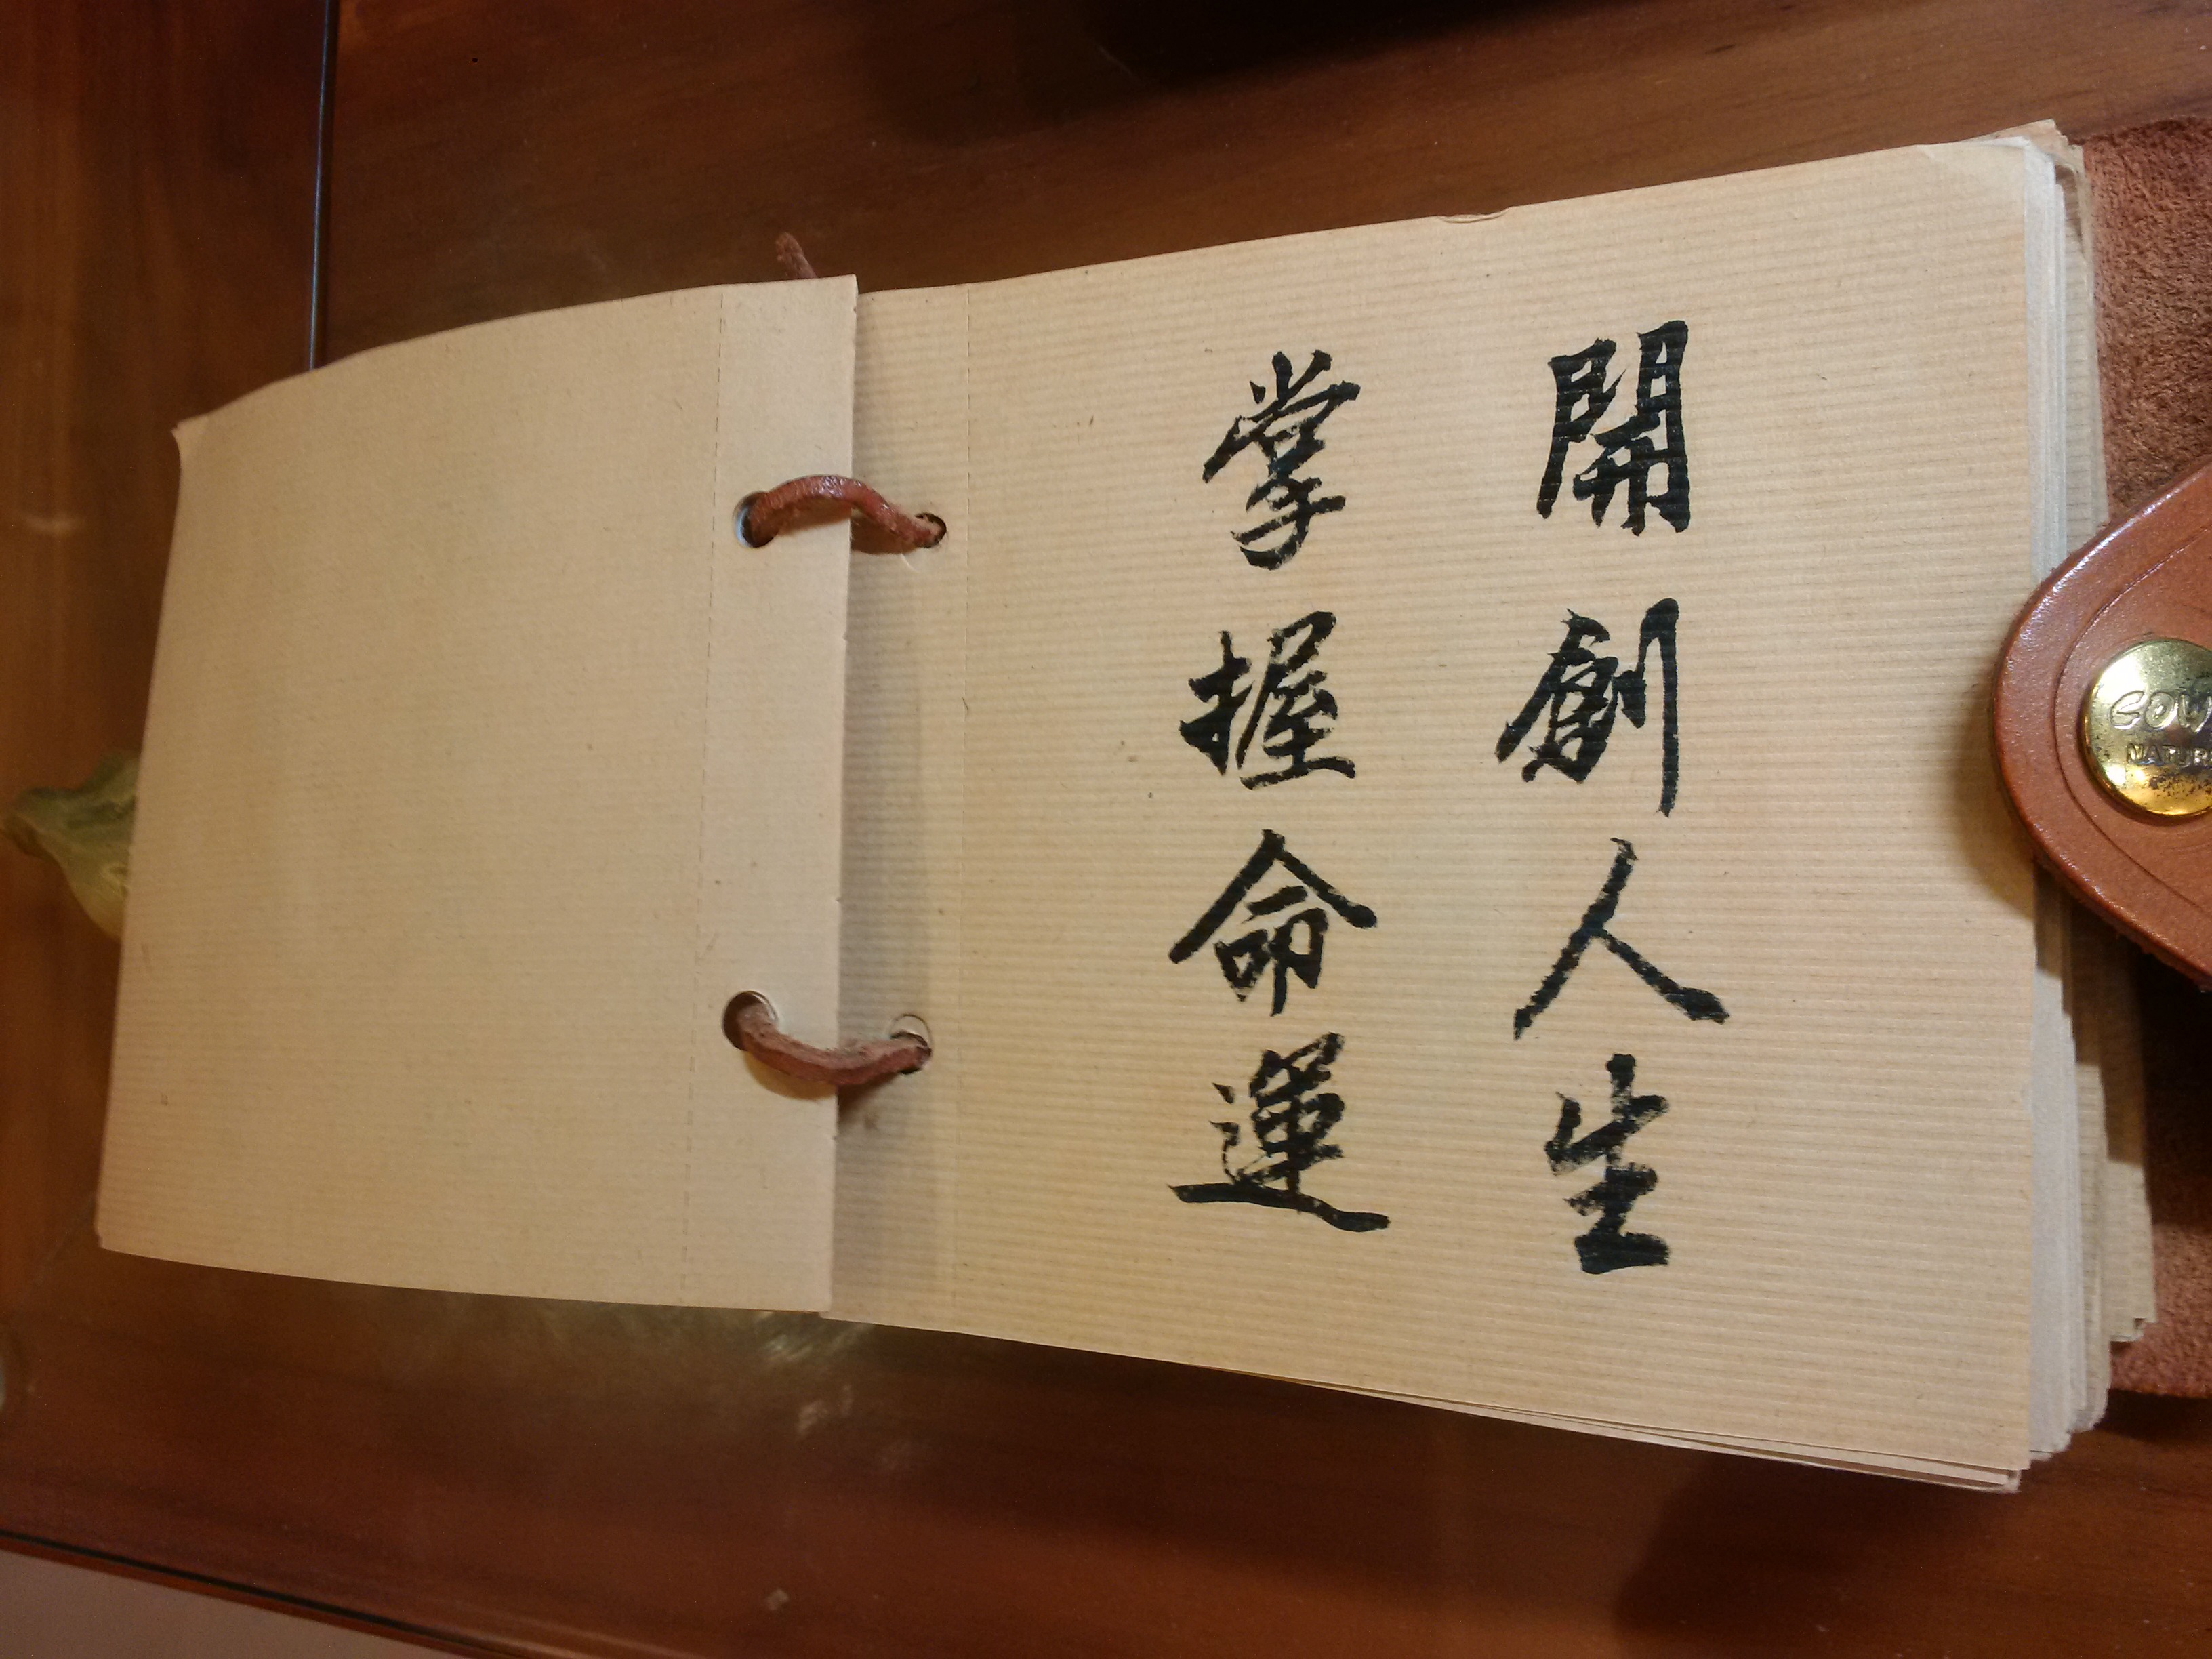 開創人生
掌握命運